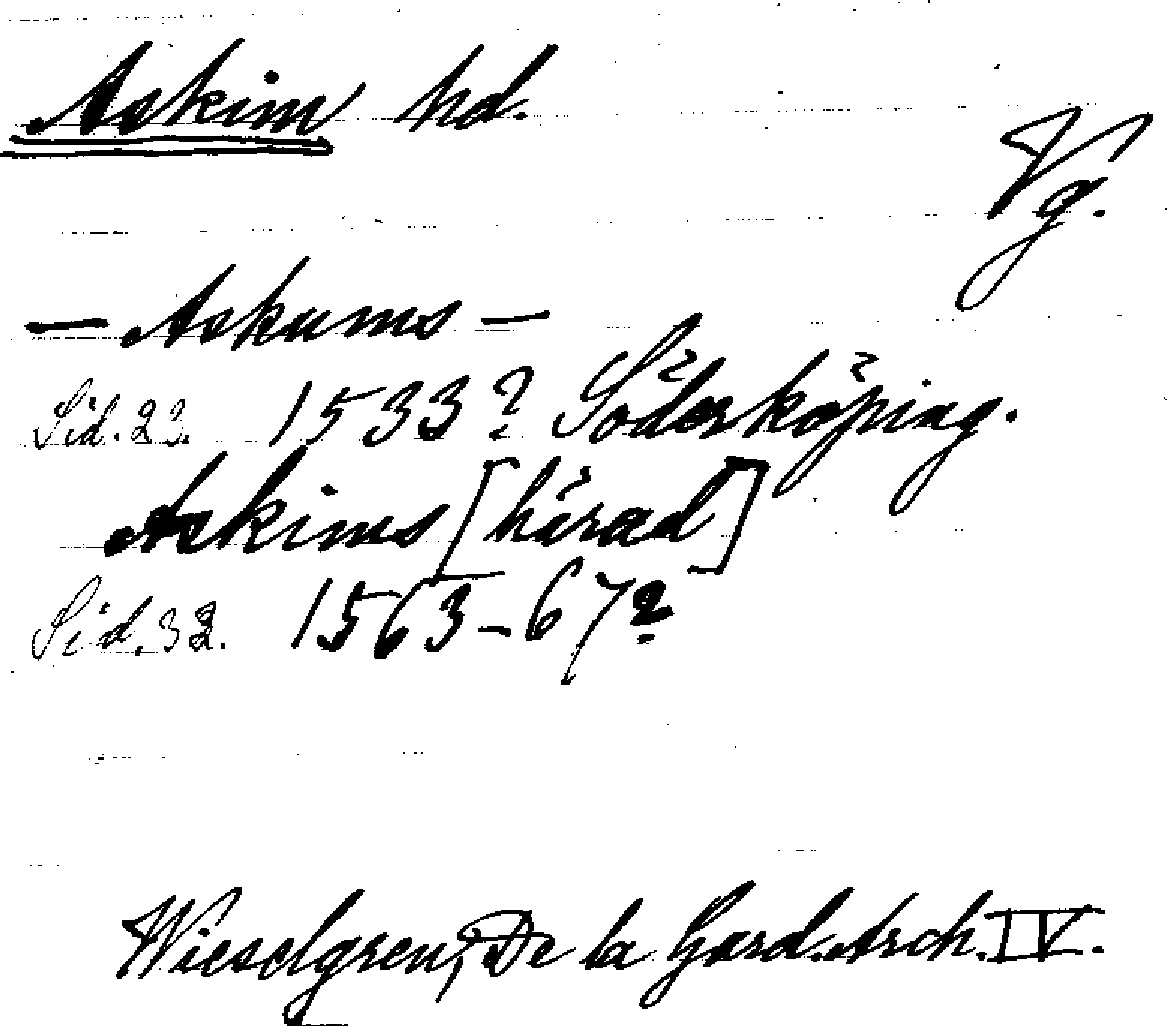 Askim hd.
Vg.
— Askums —
Sid. 22. 1533? Söderköping.
Askims [härad]
Sid. 32. 1563-67?
Wieselgren, De la Gard. Arch. IV.